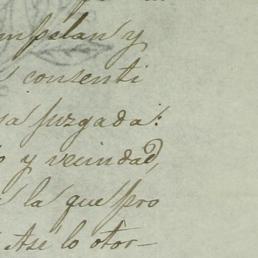 mpelan y
consenti
sa juzgada:
y vecindad,
la que pro
Asi lo otor-